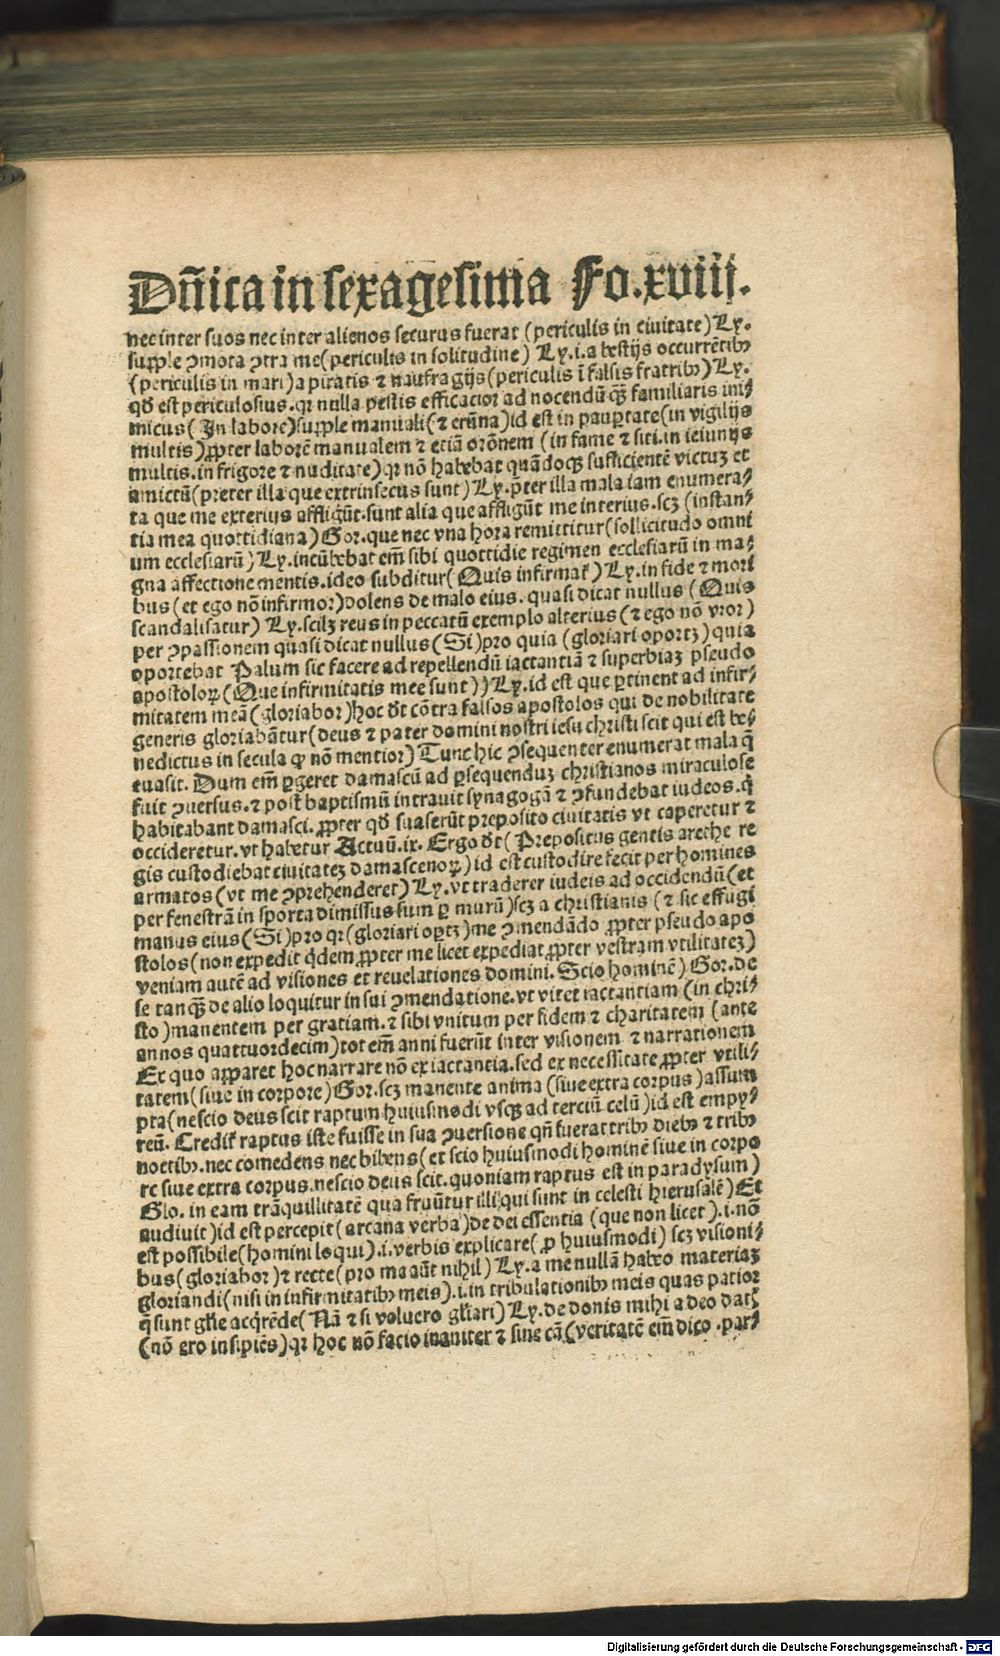 Dñica in sexagesima Fo.xviij.
nec inter suos nec inter alienos securus fuerat (periculis in ciuitate) Ly.
supple ꝯmota ꝯtra me (periculis in solitudine) Ly.i.a bestijs occurrētibꝰ
(periculis in mari) a piratis ⁊ naufragijs (periculis ī falsis fratribꝰ) Ly.
qđ est periculosius. qꝛ nulla pestis efficacior ad nocendū qͣꝫ familiaris ini⸗
micus (In labore) supple manuali (⁊ erūna) id est in pauꝑtate (in vigilijs
multis) ꝓpter laborē manualem ⁊ etiā orōnem (in fame ⁊ siti. in ieiunijs
multis. in frigore ⁊ nuditate) qꝛ nō habebat quādoqꝫ sufficientē victuꝫ et
amictū (preter illa que extrinsecus sunt) Ly. p̄ter illa mala iam enumera⸗
ta que me exterius affligūt. sunt alia que affligūt me interius. scꝫ (instan⸗
tia mea quottidiana) Gor. que nec vna hora remittitur (sollicitudo omni
um ecclesiarū) Ly. incūbebat em̄ sibi quottidie regimen ecclesiarū in ma⸗
gna affectione mentis. ideo subditur (Quis infirmat̄) Ly. in fide ⁊ mori
bus (et ego nō infirmor) dolens de malo eius. quasi dicat nullus (Quis
scandalisatur) Ly. scilꝫ reus in peccatū exemplo alterius (⁊ ego nō vror)
per ꝯpassionem quasi dicat nullus (Si) pro quia (gloriari oportꝫ) quia
oportebat Palum sic facere ad repellendū iactantiā ⁊ superbiaꝫ pseudo
apostoloꝝ (Que infirmitatis mee sunt)) Ly. id est que ꝑtinent ad infir⸗
mitatem meā (gloriabor) hoc đt cōtra falsos apostolos qui de nobilitate
generis gloriabāntur (deus ⁊ pater domini nostri iesu christi scit qui est be⸗
nedictus in secula ꝙ nō mentior) Tunc hic ꝯsequenter enumerat mala q̄
euasit. Dum em̄ ꝑgeret damascū ad ꝑsequenduꝫ christianos miraculose
fuit ꝯuersus. ⁊ post baptismū intrauit synagogā ⁊ ꝯfundebat iudeos. q̇
habitabant damasci. ꝓpter qđ suaserūt preposito ciuitatis vt caperetur ⁊
occideretur. vt habetur Actuū.ix. Ergo đt (Prepositus gentis arethe re
gis custodiebat ciuitateꝫ damascenoꝝ) id est custodire fecit per homines
armatos (vt me ꝯprehenderet) Ly. vt traderer iudeis ad occidendū (et
per fenestrā in sporta dimissus sum ꝑ murū) scꝫ a christianis (⁊ sic effugi
manus eius (Si) pro qꝛ (gloriari oꝑtꝫ) me ꝯmendādo ꝓpter pseudo apo
stolos (non expedit q̇dem ꝓpter me licet expediat ꝓpter vestram vtilitateꝫ)
veniam autē ad visiones et reuelationes domini. Scio hominē) Gor. de
se tanqͣꝫ de alio loquitur in sui ꝯmendatione. vt vitet iactantiam (in chri⸗
sto) manentem per gratiam. ⁊ sibi vnitum per fidem ⁊ charitatem (ante
annos quattuordecim) tot em̄ anni fuerūt inter visionem ⁊ narrationem
Ex quo apparet hoc narrare nō ex iactantia. sed ex necessitate ꝓpter vtili⸗
tatem (siue in corpore) Gor. scꝫ manente anima (siue extra corpus) assum
pta (nescio deus scit raptum huiusmodi vsqꝫ ad terciū celū) id est empy⸗
reū. Credit̄ raptus iste fuisse in sua ꝯuersione qn̄ fuerat tribꝰ diebꝰ ⁊ tribꝰ
noctibꝰ. nec comedens nec bibens (et scio huiusmodi hominē siue in corpo
re siue extra corpus. nescio deus scit. quoniam raptus est in paradysum)
Glo. in eam trāquillitatē qua fruūtur illi qui sunt in celesti hierusalē) Et
audiuit) id est percepit (arcana verba) de dei essentia (que non licet).i. nō
est possibile (homini loqui).i. verbis explicare (ꝓ huiusmodi) scꝫ visioni⸗
bus (gloriabor) ⁊ recte (pro me aūt nihil) Ly. a me nullā habeo materiaꝫ
gloriandi (nisi in infirmitatibꝰ meis).i. in tribulationibꝰ meis quas patior
q̄ sunt gl̄ie acq̇rēde (Nā ⁊ si voluero gl̄iari) Ly. de donis mihi a deo dat⸗
(nō ero insipiēs) qꝛ hoc nō facio inaniter ⁊ sine cā (veritatē em̄ dico. par⸗
Digitalisierung gefördert durch die Deutsche Forschungsgemeinschaft - DFG